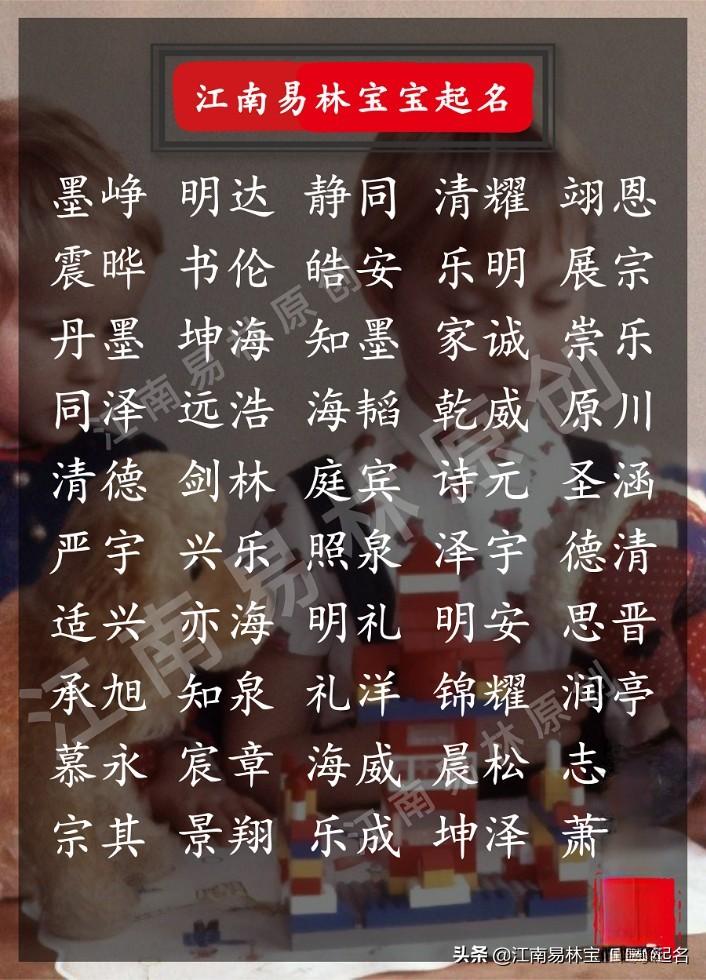 江南易林宝宝起名
墨峥 明达 静同 清耀 翊恩
震晔 书伦 皓安 乐明 展宗
丹墨 坤海 知墨 家诚 崇乐
同泽 远浩 海韬 乾威 原川
清德 剑林 庭宾 诗元 圣涵
严宇 兴乐 照泉 泽宇 德清
适兴 亦海 明礼 明安 思晋
承旭 知泉 礼洋 锦耀 润亭
慕永 宸章 海威 晨松 志
宗其 景翔 乐成 坤泽 萧
江南易林原创
江南易林原创
江南易林原创
头条 @江南易林宝 起名